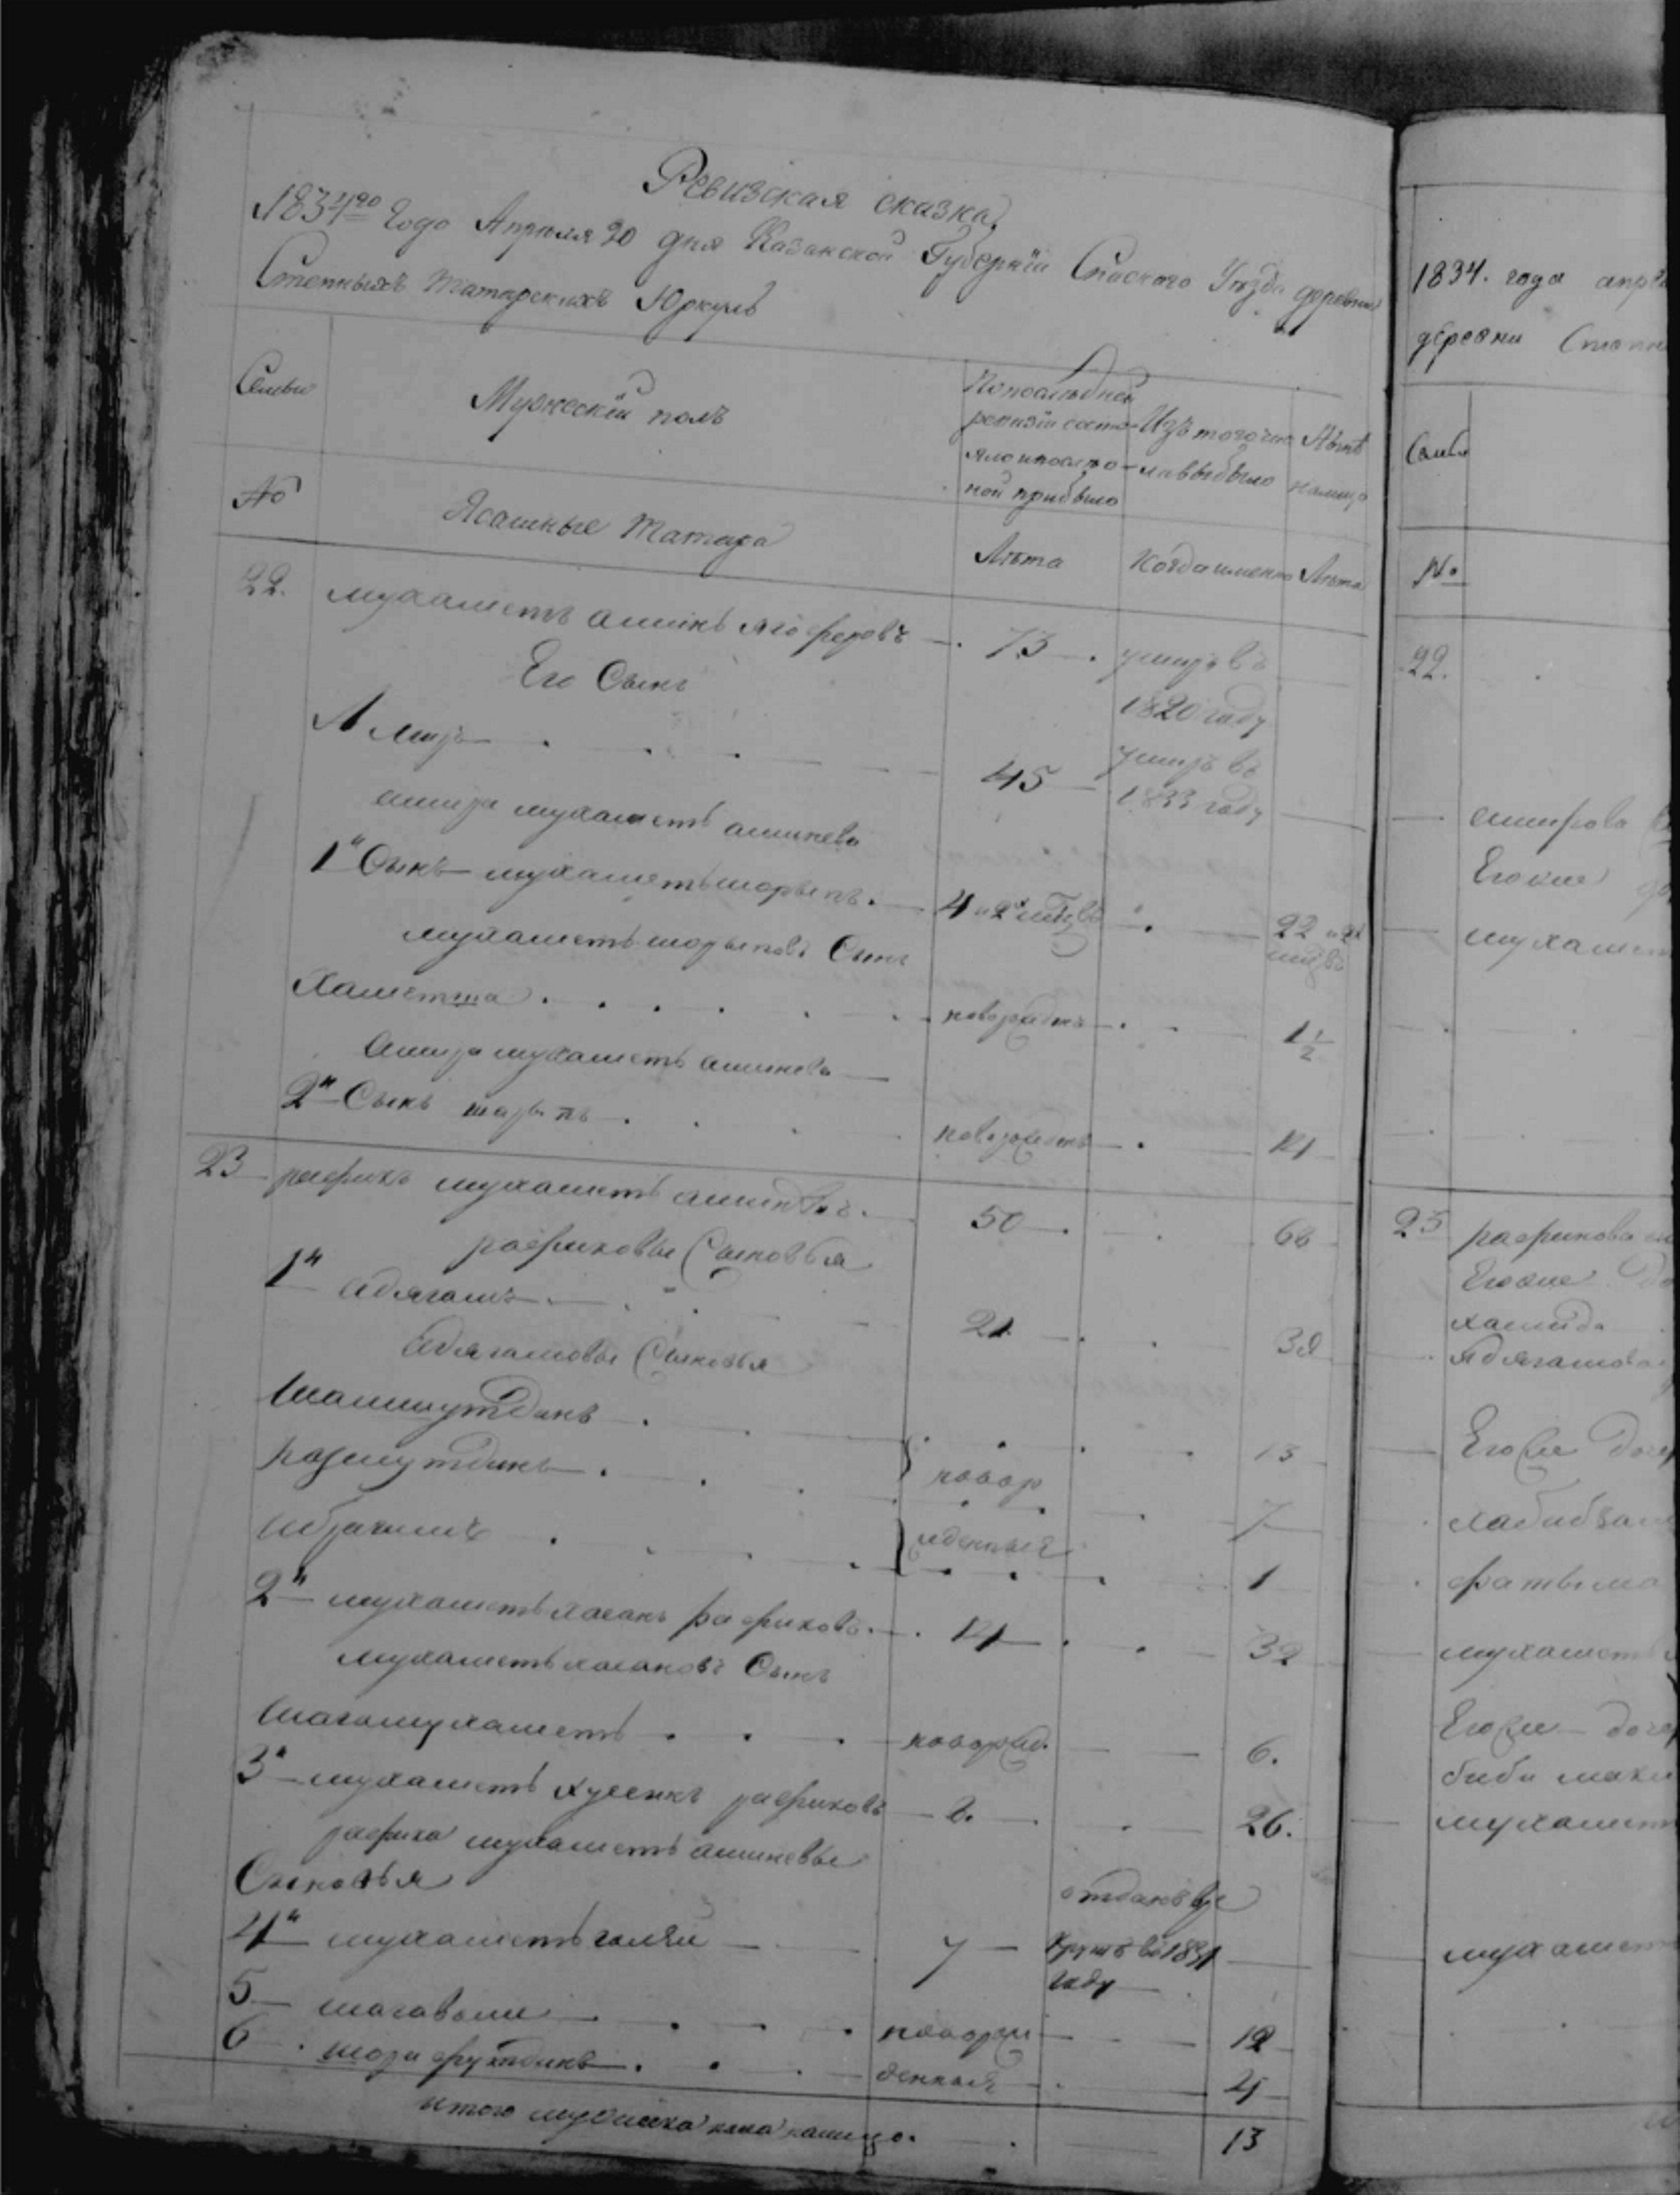 Ревизская сказка
1834го Года Апреля 20 дня Казанской Губернїи Спаского Уезда деревни
Степныхъ Татарскихъ Юркуль
Семьи
Мужескїй полъ
По последней
ревизїи состо-
яло и после о-
ной прибыло
Изъ того чис
ла выбыло
Ныне
на лицо
№
Ясашные Татара
Лета
Когда именно
Лета
22. мухаметь аминь ягоферовъ 73 умиръ въ
1820 году
Его Сынъ
Амиръ 45 умиръ въ
1833 году
амира мухаметь аминева
1й Сынъ мухаметьшарыпъ 4 и 2х 22 и 2х
мухаметь шарыповъ Сынъ
Хаметша новорожденъ 1 1/2
Амира мухаметь аминева
2й Сынъ новорожденъ 14
23 рафикъ мухаметь аминевъ 50 68
рафиковы Сыновья
1й Адягамъ 21 39
Адягамовы Сыновья
Шамшутдинъ 15
новор
7
Ибрагимъ жденныя 1
2й мухаметь хасанъ рафиковъ 14 32
мухаметь хасановъ Сынъ
Шагамухаметь новорожд. 6.
3й мухаметь хусеинъ рафиковъ 8. 26.
рафика мухаметь аминевы
Сыновья
отданъ в ре
4й мухаметьгалей 7 круты въ 1831
году
5 шагавали новорож 12
6 шарафутдинъ денныя 4
итого мужеска пола налицо 13
1834. года апре
деревни Степн
Семьи
№
22.
амирова
Его же
мухамет
23 рафикова
Его же до
хамида
Адягамова
Его же дочер
фатыма
мухаметь
Его же дочер
биби
мухамет
мухамет